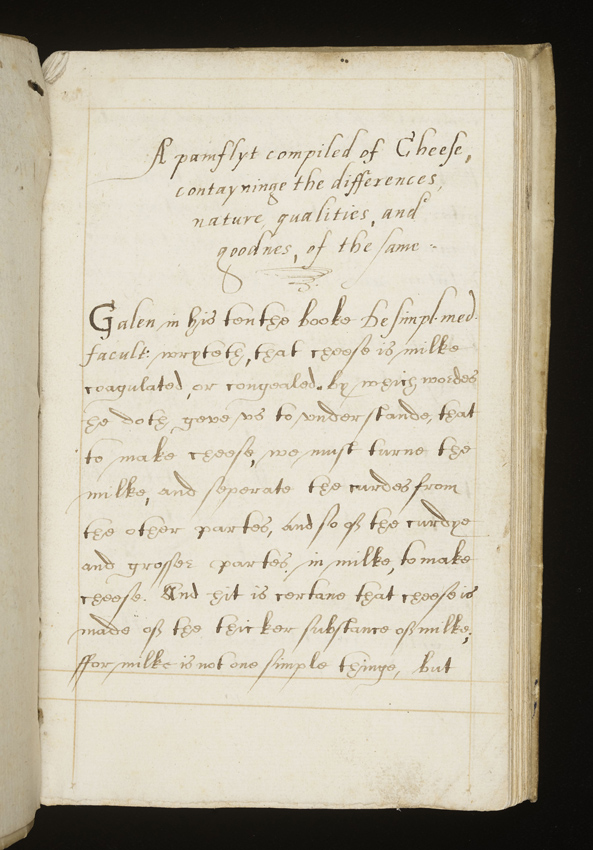 A pamflyt compiled of Cheese,
contayninge the differences,
nature, qualities, and
goodnes, of the same
Galen in his tenthe booke De simpl. med.
facult: wryteth, that cheese is milke
coagulated, or congealed. by which wordes
he doth geve vs to vnderstande, that
to make cheese, we must turne the
milke, and seperate the curdes from
the other partes, and so of the curdye
and grosser partes in milke, to make
cheese. And hit is certane that cheese is
made of the thicker substance of milke,
ffor milke is not one simple thinge, but